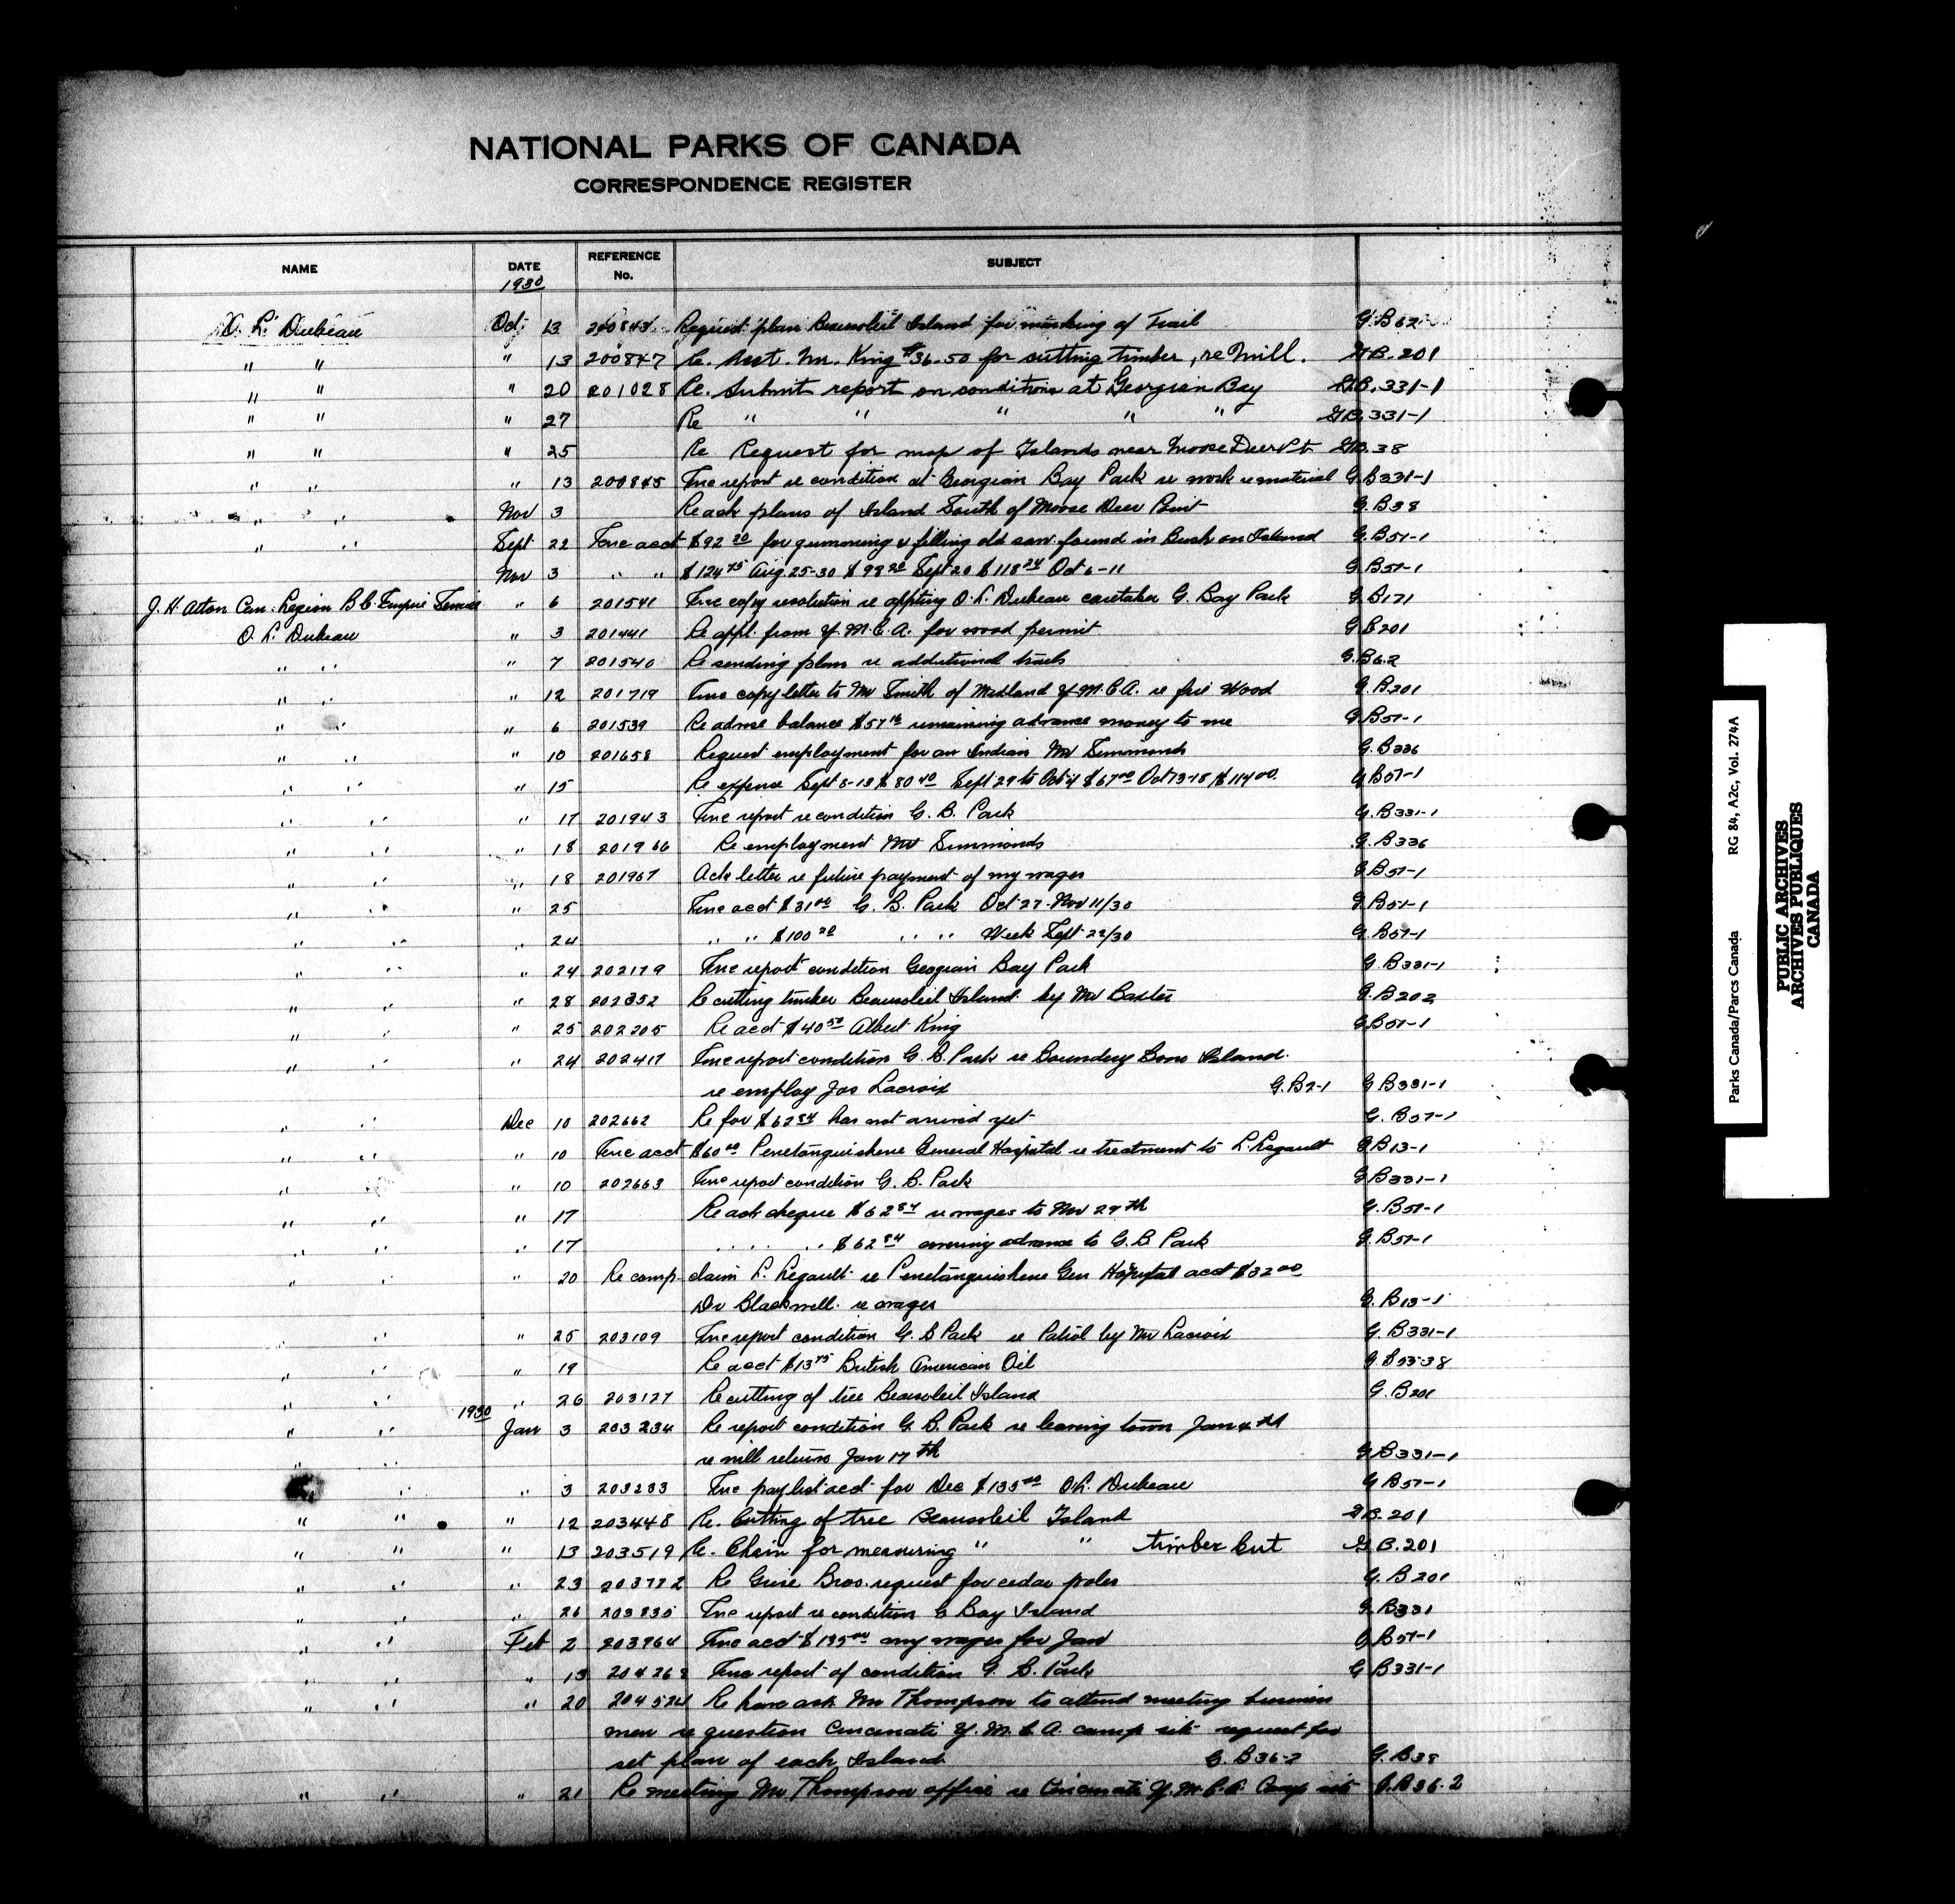 NATIONAL PARKS OF CANADA
CORRESPONDENCE REGISTER
NAME DATE REFERENCE No. SUBJECT
1930
O. L. Dubeau Oct 13 200843 Request plan Beausoleil Island for marking of Trail G.B 62
" " " 13 200847 Re. Acct. Mr. King $36.50 for cutting timber, re Mill. G.B. 201
" " " 20 201028 Re. Submit report on conditions at Georgian Bay G.B. 331-1
" " " 27 Re " " " " " G.B. 331-1
" " " 25 Re Request for map of Islands near Moose Deer Pt G.B. 38
" " " 13 200845 Enc report re condition at Georgian Bay Park re work re material G.B331-1
" " Nov 3 Re ack plans of Island South of Moose Deer Point G.B38
" " Sept 22 Enc acct $92 20 for gumming & filling old saw found in Bush on Island G.B57-1
Nov 3 " " $124 75 Aug 25-30 $98 20 Sept 20 $118 24 Oct 6-11 G.B57-1
J. H. Aton Can. Legion B.E. Empire Service " 6 201541 Enc copy resolution re appting O. L. Dubeau caretaker G. Bay Park G.B171
O. L. Dubeau " 3 201441 Re appl. from Y.M.C.A. for wood permit G B201
" " " 7 201540 Re sending plan re additional trails G.B62
" " " 12 201719 Enc copy letter to Mr Smith of Midland Y.M.C.A. re fire Wood G.B201
" " " 6 201539 Re advise balance $57 16 remaining advance money to me G.B57-1
" " " 10 201658 Request employment for an Indian Mr Simmonds G.B336
" " " 15 Re expense Sept 8-13 $80 40 Sept 29 to Oct 4 $67 00 Oct 13-18 $114 00 G.B57-1
" " " 17 201943 Enc report re condition G. B. Park G.B331-1
" " " 18 201966 Re employment Mr Simmonds G.B336
" " " 18 201967 Ack letter re future payment of my wages G.B57-1
" " " 25 Enc acct $31 00 G. B. Park Oct 27-Nov 11/30 G.B57-1
" " " 24 " " $100 20 " " Week Sept 22/30 G.B57-1
" " " 24 202179 Enc report condition Geogian Bay Park G.B331-1
" " " 28 202352 Re cutting timber Beausoleil Island by Mr Baxter G.B202
" " " 25 202205 Re acct $40 50 Albert King G.B57-1
" " " 24 202417 Enc report condition G. B. Park re Boundery Bone Island
re employ Jos Lacroix G.B2-1 G.B331-1
" " Dec 10 202662 Re for $62 84 has not arrived yet G.B57-1
" " " 10 Enc acct $60 00 Penetanguishene General Hospital re treatment to L. Legault G.B13-1
" " " 10 202663 Enc report condition G. B. Park G.B331-1
" " " 17 Re ack cheque $62 84 re wages to Nov 29th G.B57-1
" " " 17 " " " $62 84 covering advance to G.B Park G.B57-1
" " " 20 Re comp claim L. Legault re Penetanguishene Gen Hospital acct $32 00
Dr Blackwell re wages G.B13-1
" " " 25 203109 Enc report condition G. B Park re Patrol by Mr Lacroix G.B331-1
" " " 19 Re acct $13 75 British American Oil G.B55-38
" " " 26 203127 Re cutting of tree Beausoleil Island G.B201
1930
" " Jan 3 203234 Re report condition G. B. Park re leaving town Jan 4th
" " re will return Jan 17th G.B331-1
" " 3 203233 Enc paylist acct for Dec $135 00 O.L. Dubeau G B57-1
" " " 12 203448 Re. Cutting of tree Beausoleil Island G.B. 201
" " " 13 203519 Re. Chain for measuring " " timber cut G.B. 201
" " " 23 203772 Re Grise Bros. request for cedar poles G.B201
" " " 26 203830 Enc report re condition G Bay Island G.B331
" " Feb 2 203964 Enc acct $135 00 my wages for Jan G.B57-1
" " " 13 204262 Enc report of condition G. B. Park G B331-1
" " " 20 204524 Re have ask Mr Thompson to attend meeting business
men re question Cincinati Y.M.C.A. camp site request for
set plan of each Island G.B36-2 G.B38
" " " 21 Re meeting Mr Thompson office re Cincinati Y.M.C.A. Camp site G.B36.2
Parks Canada/Parcs Canada RG 84, A2c, Vol. 274A
PUBLIC ARCHIVES
ARCHIVES PUBLIQUES
CANADA